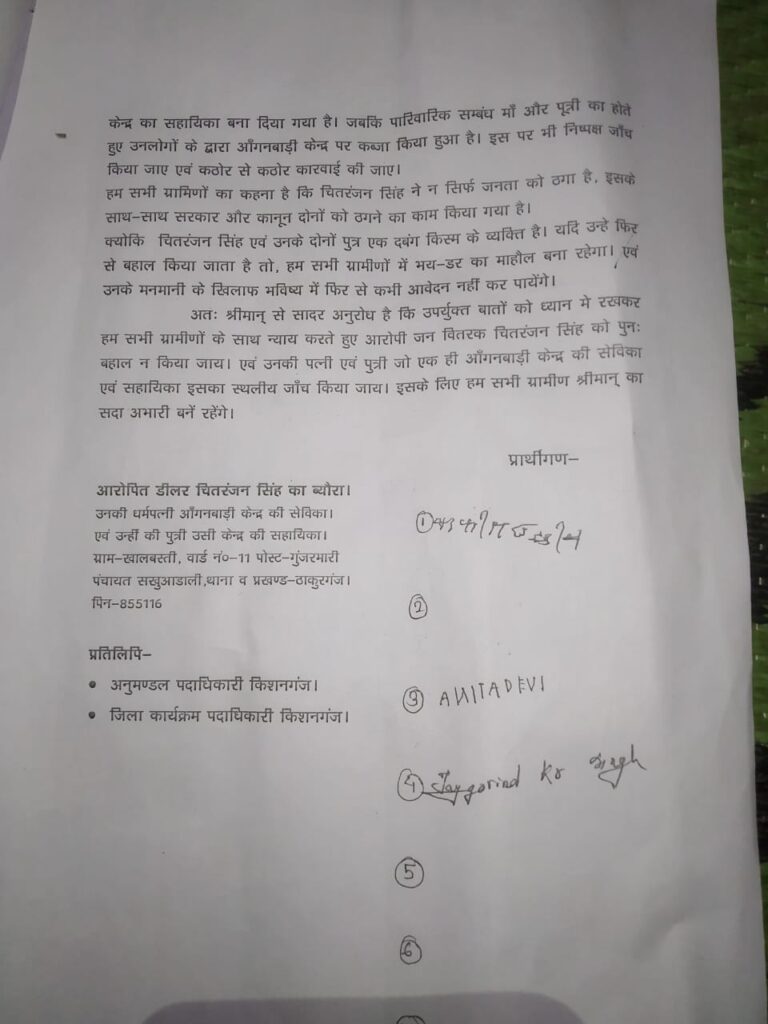 केन्द्र का सहायिका बना दिया गया है। जबकि पारिवारिक सम्बंध माँ और पूत्री का होते
हुए उनलोगों के द्वारा आँगनबाड़ी केन्द्र पर कब्जा किया हुआ है। इस पर भी निष्पक्ष जाँच
किया जाए एवं कठोर से कठोर कारवाई की जाए।
हम सभी ग्रामिणों का कहना है कि चितरंजन सिंह ने न सिर्फ जनता को ठगा है, इसके
साथ-साथ सरकार और कानून दोनों को ठगने का काम किया गया है।
क्योकि चितरंजन सिंह एवं उनके दोनों पुत्र एक दबंग किस्म के व्यक्ति है। यदि उन्हे फिर
से बहाल किया जाता है तो, हम सभी ग्रामीणों में भय-डर का माहौल बना रहेगा। एवं
उनके मनमानी के खिलाफ भविष्य में फिर से कभी आवेदन नहीं कर पायेंगे।
अतः श्रीमान् से सादर अनुरोध है कि उपर्युक्त बातों को ध्यान मे रखकर
हम सभी ग्रामीणों के साथ न्याय करते हुए आरोपी जन वितरक चितरंजन सिंह को पुनः
बहाल न किया जाय। एवं उनकी पत्नी एवं पुत्री जो एक ही आँगनबाड़ी केन्द्र की सेविका
एवं सहायिका इसका स्थलीय जाँच किया जाय। इसके लिए हम सभी ग्रामीण श्रीमान् का
सदा अभारी बनें रहेंगे।
प्रार्थीगण-
आरोपित डीलर चितरंजन सिंह का ब्यौरा।
उनकी धर्मपत्नी आँगनबाड़ी केन्द्र की सेविका।
एवं उन्हीं की पुत्री उसी केन्द्र की सहायिका।
ग्राम-खालबस्ती, वार्ड नं०-11 पोस्ट-गुंजरमारी
पंचायत सखुआडाली,थाना व प्रखण्ड-ठाकुरगंज।
पिन-855116
प्रतिलिपि-
• अनुमण्डल पदाधिकारी किशनगंज।
• जिला कार्यक्रम पदाधिकारी किशनगंज।
1
2
3 ANITADEVI
4 Jaygovind Kr Singh
5
6